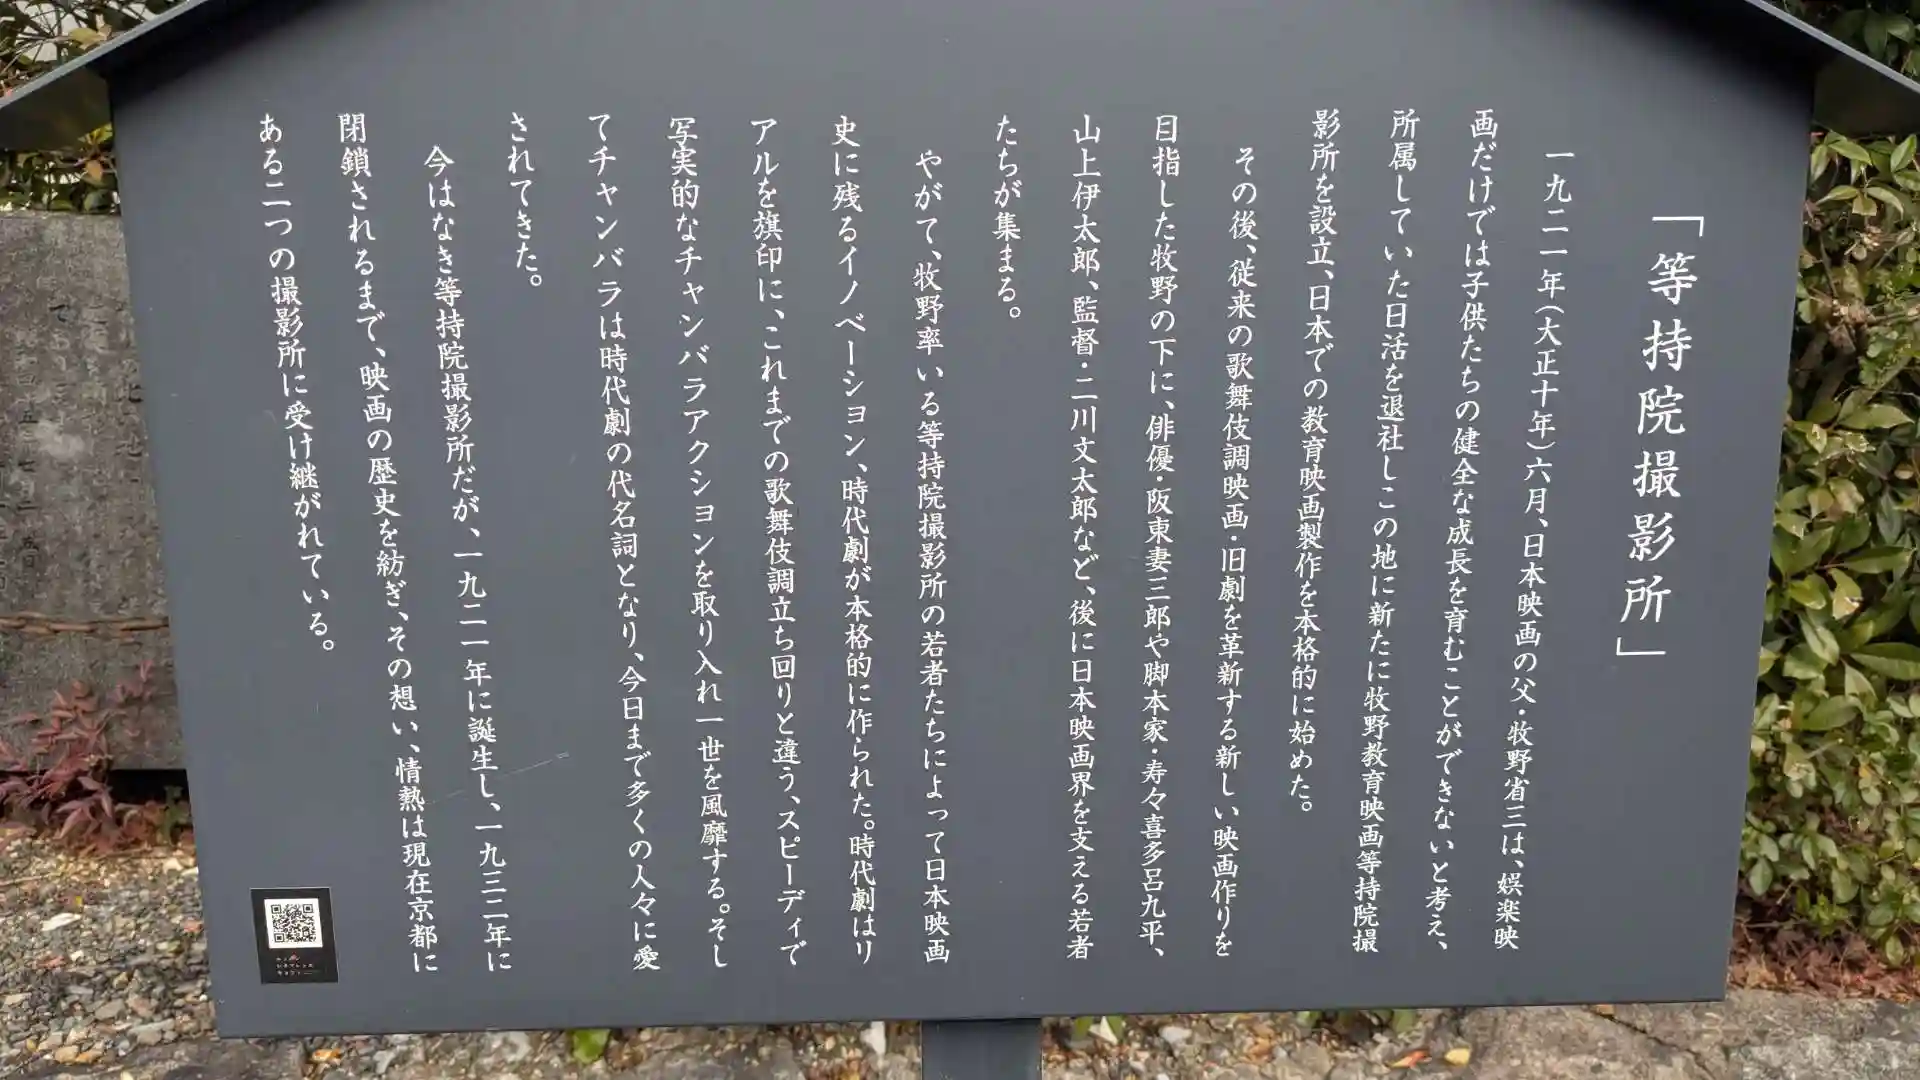 「等持院撮影所」
一九二一年（大正十年）六月、日本映画の父・牧野省三は、娯楽映
画だけでは子供たちの健全な成長を育むことができないと考え、
所属していた日活を退社しこの地に新たに牧野教育映画等持院撮
影所を設立、日本での教育映画製作を本格的に始めた。
その後、従来の歌舞伎調映画・旧劇を革新する新しい映画作りを
目指した牧野の下に、俳優・阪東妻三郎や脚本家・寿々喜多呂九平、
山上伊太郎、監督・二川文太郎など、後に日本映画界を支える若者
たちが集まる。
やがて、牧野率いる等持院撮影所の若者たちによって日本映画
史に残るイノベーション、時代劇が本格的に作られた。時代劇はリ
アルを旗印に、これまでの歌舞伎調立ち回りと違う、スピーディで
写実的なチャンバラアクションを取り入れ一世を風靡する。そし
てチャンバラは時代劇の代名詞となり、今日まで多くの人々に愛
されてきた。
今はなき等持院撮影所だが、一九二一年に誕生し、一九三二年に
閉鎖されるまで、映画の歴史を紡ぎ、その想い、情熱は現在京都に
ある二つの撮影所に受け継がれている。